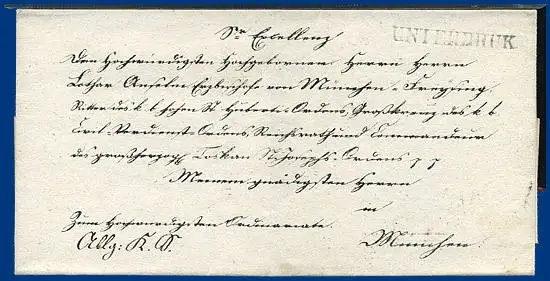 Sr Excellenz
UNTERDRUK
Den Hochwürdigsten Hochgebornen Herrn Herrn
Lothar Anselm Erzbischofe von München-Freysing,
Ritter des k b hohen St Huberti-Ordens, Großkreuz des k b
Civil-Verdienst-Ordens, Reichsrath und Commandeur
des großherzogl Toskan St Josephs-Ordens
Meinem gnädigsten Herrn
in
Zum Hochwürdigsten Ordinariate.
München.
Ablg: K. S.